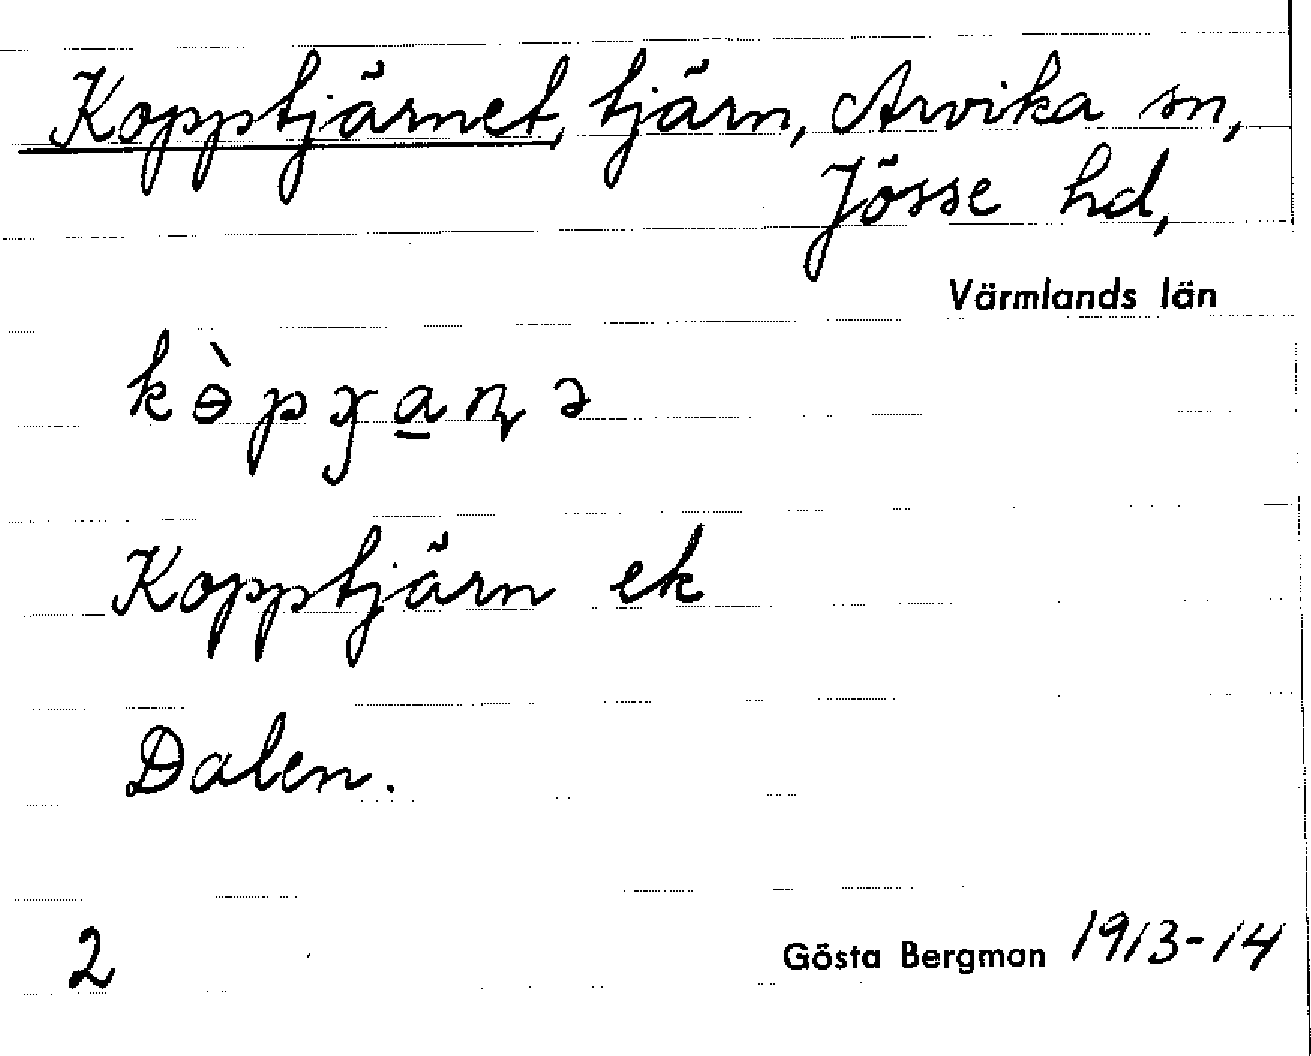 Kopptjärnet, tjärn, Arvika sn,
Jösse hd,
Värmlands län
kɵ̀pɣa̲ɳə
Kopptjärn ek
Dalen.
2 Gösta Bergman 1913-14